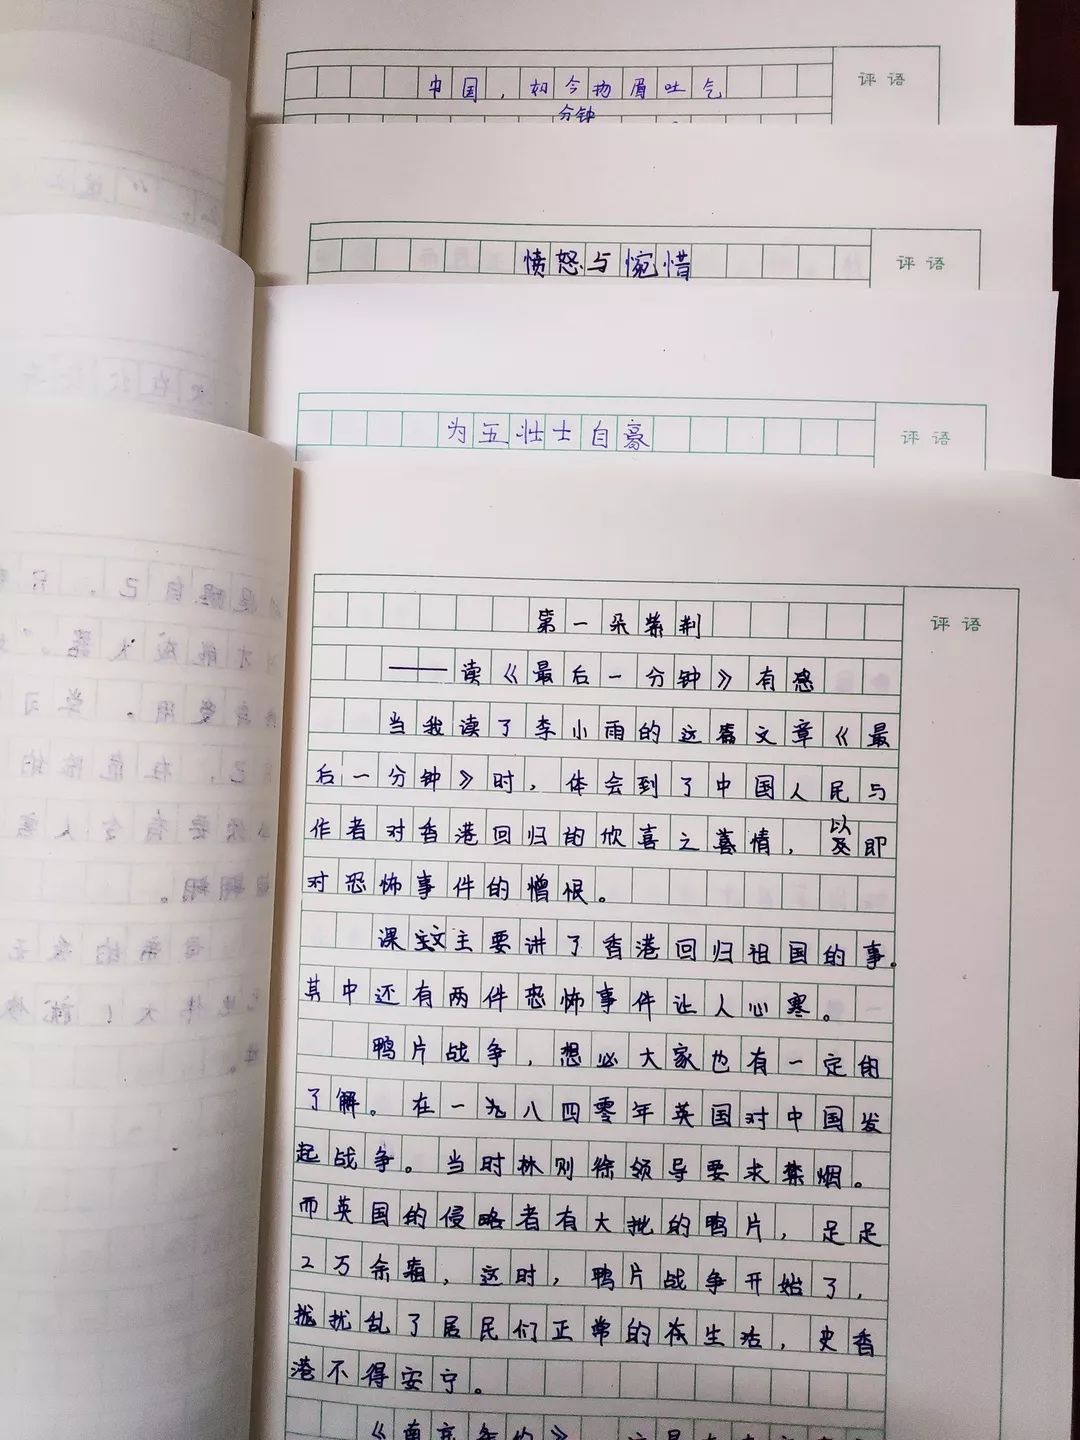 中国，如今扬眉吐气
评语
分钟
愤怒与惋惜
评语
为五壮士自豪
评语
第一朵紫荆
评语
——读《最后一分钟》有感
当我读了李小雨的这篇文章《最
后一分钟》时，体会到了中国人民与
作者对香港回归的欣喜之情，以及
对恐怖事件的憎恨。
课文主要讲了香港回归祖国的事。
其中还有两件恐怖事件让人心寒。
鸭片战争，想必大家也有一定的
了解。在一八四零年英国对中国发
起战争。当时林则徐领导要求禁烟。
而英国的侵略者有大批的鸭片，足足
2万余箱，这时，鸭片战争开始了，
扰乱了居民们正常的生活，史香
港不得安宁。
《南京条约》，这是